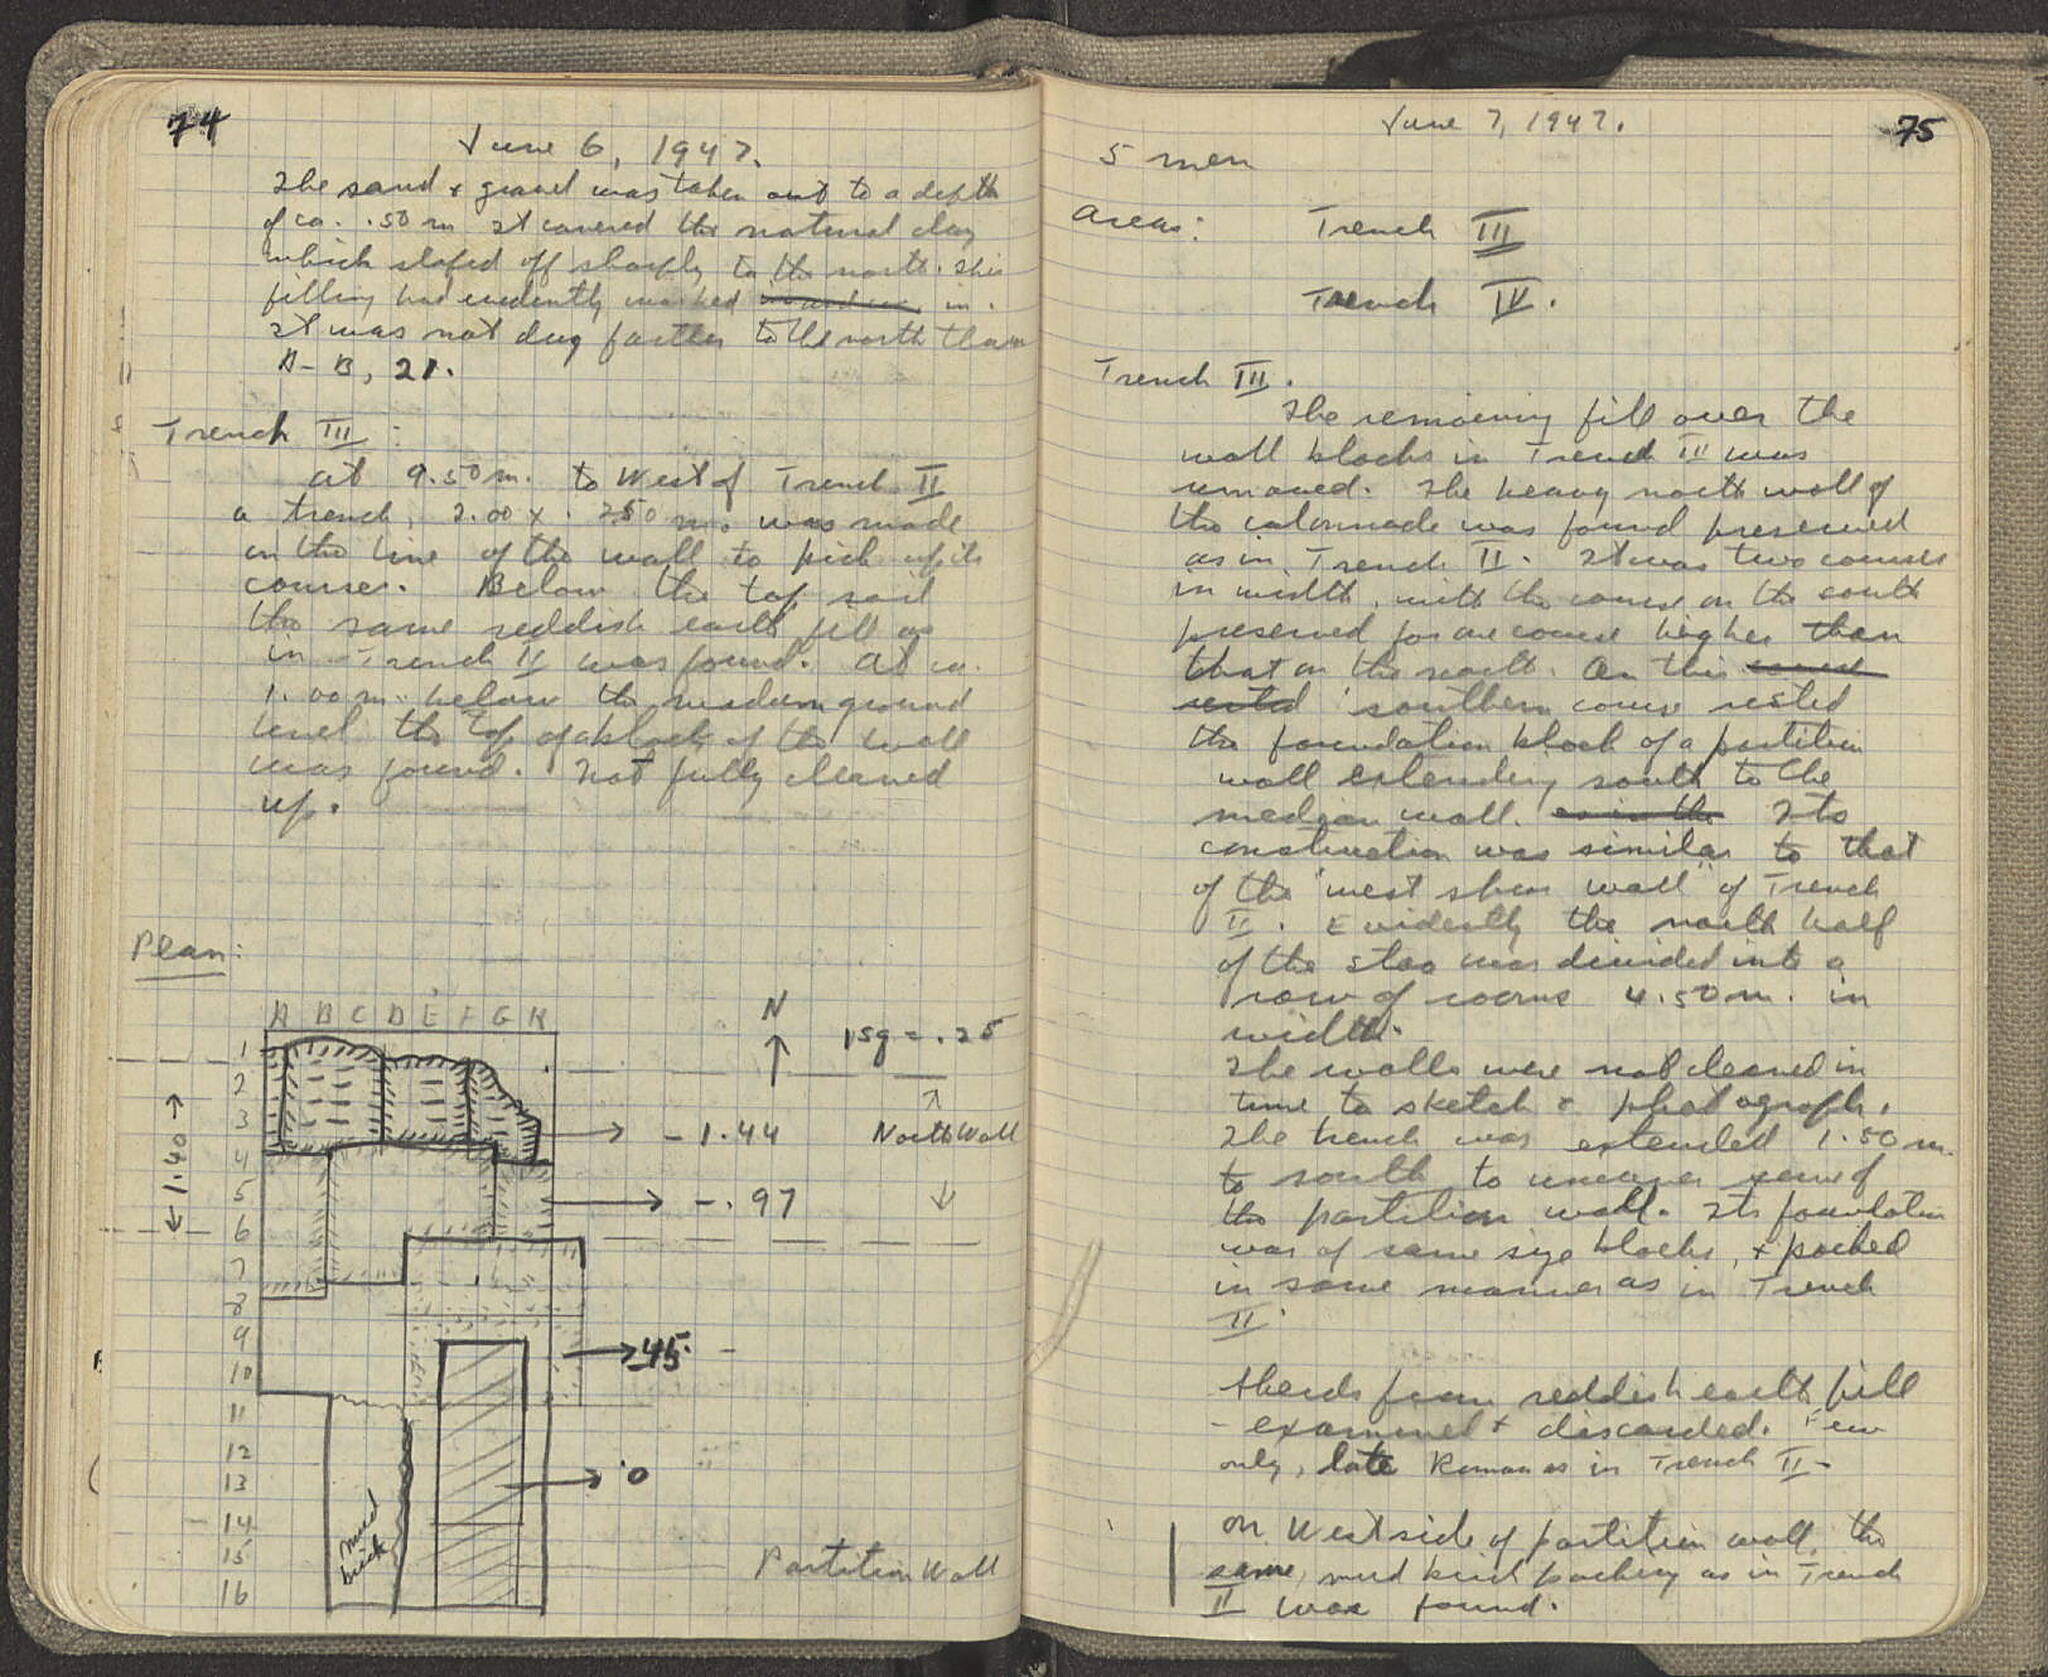 74
June 6, 1947.
The sand + gravel was taken out to a depth
of ca. .50 m It covered the natural clay
which sloped off sharply to the north. This
filling had evidently washed in.
It was not dug farther to the north than
A-B, 21.
Trench III :
At 9.50 m. to West of Trench II
a trench, 2.00 x . 250 m. was made
on the line of the wall to pick up its
course. Below the top soil
the same reddish earth fill as
in Trench II was found. At ca.
1.00 m. below the modern ground
level the top of a block of the wall
was found. Not fully cleaned
up.
Plan:
A B C D E F G H
N
1 sq = .25
1
2
3
4
5
6
7
8
9
10
11
12
13
14
15
16
1.40
- 1.44
North Wall
- .97
.45
0
mud
brick
Partition Wall
75
June 7, 1947.
5 men
Areas: Trench III
Trench IV.
Trench III.
The remaining fill over the
wall blocks in Trench III was
removed. The heavy north wall of
the colonnade was found preserved
as in Trench II. It was two courses
in width, with the course on the south
preserved for one course higher than
that on the north. On this
rested southern course rested
the foundation block of a partition
wall extending south to the
median wall. as in the Its
construction was similar to that
of the "west shear wall" of Trench
II. Evidently the north half
of the stoa was divided into a
row of rooms 4.50 m. in
width.
The walls were not cleaned in
time to sketch + photograph.
The trench was extended 1.50 m.
to south to uncover some of
the partition wall. Its foundation
was of same size blocks, + packed
in same manner as in Trench
II.
Sherds from reddish earth fill
- examined + discarded. Few
only, late Roman as in Trench II -
On West side of partition wall, the
same, mud brick packing as in Trench
II was found.